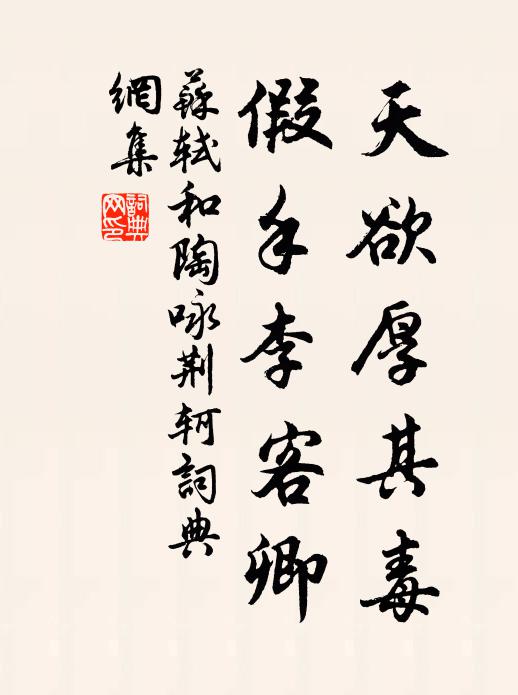 天欲厚其毒
假手李客卿
蘇軾和陶咏荆軻詞典
網集
詞典网印